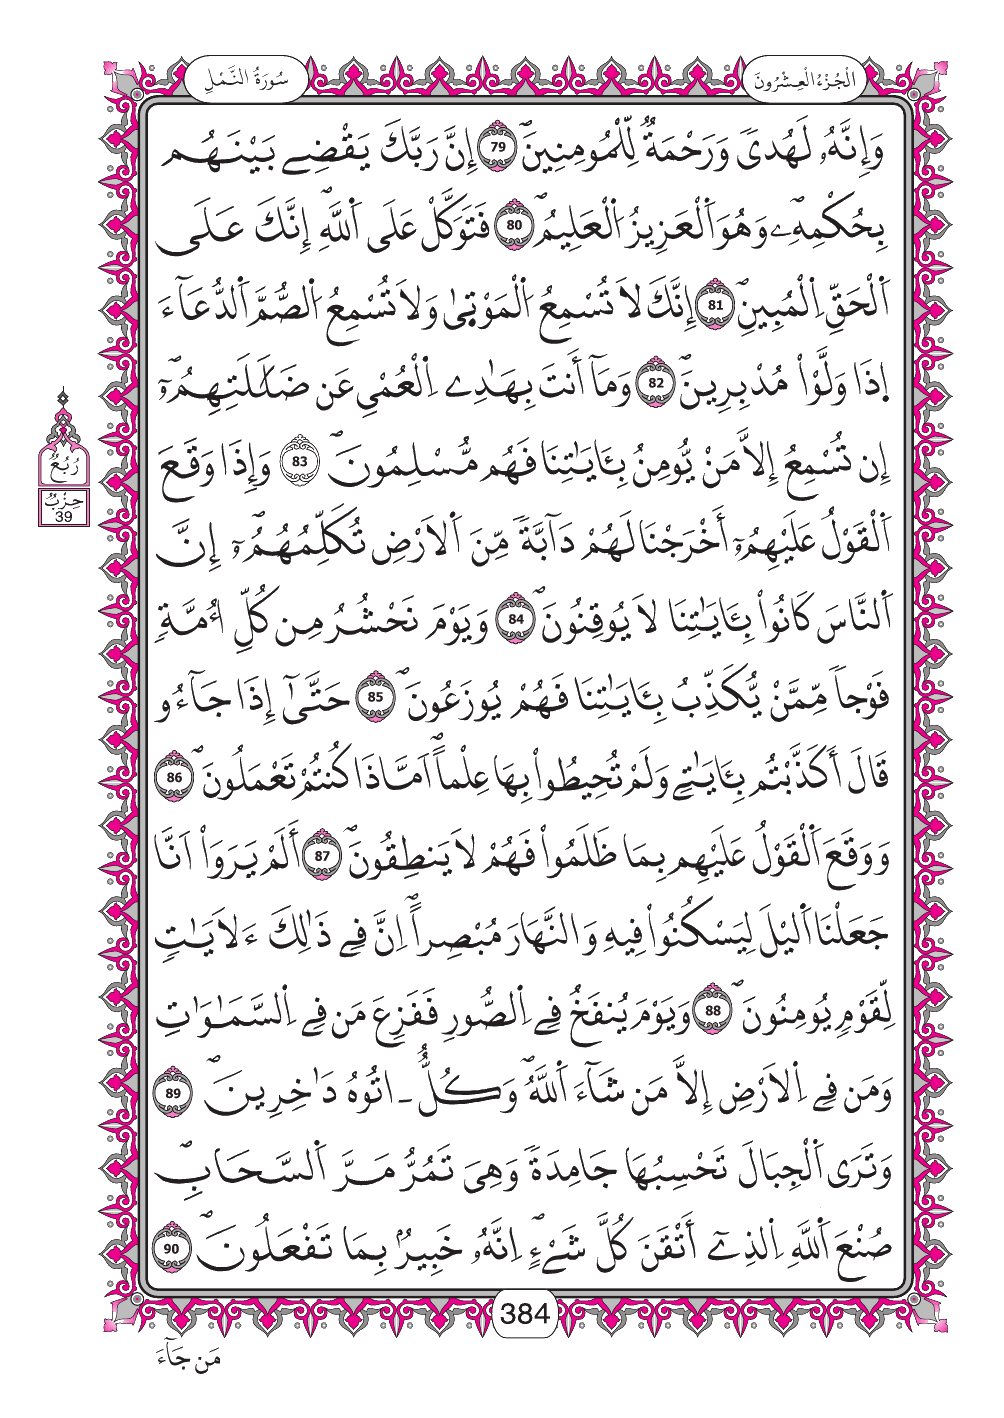 سُورَةُ النَّمْلِ
الْجُزْءُ الْعِشْرُونَ
وَإِنَّهُۥ لَهُدىٗ وَرَحْمَةٞ لِّلْمُومِنِينَۖ 79 إِنَّ رَبَّكَ يَقْضِے بَيْنَهُم
بِحُكْمِهِۦۖ وَهُوَ اَ۬لْعَزِيزُ اُ۬لْعَلِيمُۖ 80 فَتَوَكَّلْ عَلَي اَ۬للَّهِۖ إِنَّكَ عَلَي
اَ۬لْحَقِّ اِ۬لْمُبِينِۖ 81 إِنَّكَ لَا تُسْمِعُ اُ۬لْمَوْت۪يٰ وَلَا تُسْمِعُ اُ۬لصُّمَّ اَ۬لدُّعَآءَ
اِذَا وَلَّوْاْ مُدْبِرِينَۖ 82 وَمَآ أَنتَ بِهَٰدِے اِ۬لْعُمْيِ عَن ضَلَٰلَتِهِمُۥٓۖ
إِن تُسْمِعُ إِلَّا مَنْ يُّومِنُ بِـَٔايَٰتِنَا فَهُم مُّسْلِمُونَۖ 83 وَإِذَا وَقَعَ
اَ۬لْقَوْلُ عَلَيْهِمُۥٓ أَخْرَجْنَا لَهُمْ دَآبَّةٗ مِّنَ اَ۬لَارْضِ تُكَلِّمُهُمُۥٓۖ إِنَّ
اَ۬لنَّاسَ كَانُواْ بِـَٔايَٰتِنَا لَا يُوقِنُونَۖ 84 وَيَوْمَ نَحْشُرُ مِن كُلِّ أُمَّةٖ
فَوْجاٗ مِّمَّنْ يُّكَذِّبُ بِـَٔايَٰتِنَا فَهُمْ يُوزَعُونَۖ 85 حَتَّيٰٓ إِذَا جَآءُو
قَالَ أَكَذَّبْتُم بِـَٔايَٰتِے وَلَمْ تُحِيطُواْ بِهَا عِلْماًۖ اَمَّاذَا كُنتُمْ تَعْمَلُونَۖ 86
وَوَقَعَ اَ۬لْقَوْلُ عَلَيْهِم بِمَا ظَلَمُواْ فَهُمْ لَا يَنطِقُونَۖ 87 أَلَمْ يَرَوَاْ اَنَّا
جَعَلْنَا اَ۬ليْلَ لِيَسْكُنُواْ فِيهِ وَالنَّهَارَ مُبْصِراًۖ اِنَّ فِے ذَٰلِكَ ءَلَايَٰتٖ
لِّقَوْمٖ يُومِنُونَۖ 88 وَيَوْمَ يُنفَخُ فِے اِ۬لصُّورِ فَفَزِعَ مَن فِے اِ۬لسَّمَٰوَٰتِ
وَمَن فِے اِ۬لَارْضِ إِلَّا مَن شَآءَ اَ۬للَّهُۖ وَكُلٌّ ـ اتُوهُ دَٰخِرِينَۖ 89
وَتَرَي اَ۬لْجِبَالَ تَحْسِبُهَا جَامِدَةٗ وَهِيَ تَمُرُّ مَرَّ اَ۬لسَّحَابِۖ
صُنْعَ اَ۬للَّهِ اِ۬لذِےٓ أَتْقَنَ كُلَّ شَےْءٍۖ اِنَّهُۥ خَبِيرُۢ بِمَا تَفْعَلُونَۖ 90
رُبُعُ
حِزْبُ
39
384
مَن جَآءَ